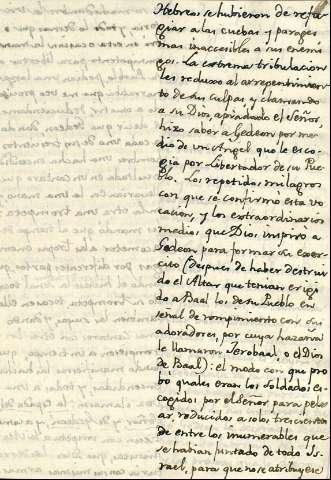 Hebreos se hubieron de refu
giar a las cuebas y parages
mas inaccesibles a sus enemi
gos. La extrema tribulacion
les reduxo al arrepentimien
to de sus culpas, y clamando
a su Dios, apiadado el Señor
hizo saber a Gedeon por me
dio de un Angel que le esco
gia por Libertador de su Pue
blo. Los repetidos milagros
con que se confirmó esta vo
cacion, y los extraordinarios
medios que Dios inspiró a
Gedeon para formar su exer
cito (despues de haber destrui
do el Altar que tenian erigi
do a Baal los de su Pueblo en
señal de rompimiento con sus
adoradores, por cuya hazaña
le llamaron Jerobaal, o el Dios
de Baal): el modo con que pro
bo quales eran los soldados es
cogidos por el Señor para pele
ar, reducidos a solos trescientos
de entre los inumerables que
se habian juntado de todo Is-
rael, para que no se atribuyese